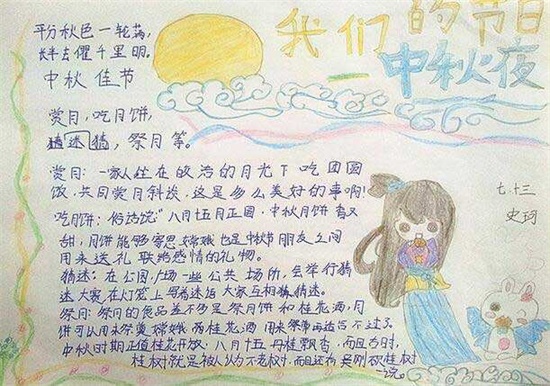 我们的节日
中秋夜
平分秋色一轮满,
长去衢千里明。
中秋佳节
赏月,吃月饼,
猜迷猜,祭月等。
赏月:一家人坐在皎洁的月光下吃团圆
饭,共同赏月,这是多么美好的事啊!
吃月饼:俗话说"八月十五月正圆,中秋月饼香又
甜,月饼能够寄思嫦娥也是中秋节朋友之间
用来送礼联络感情的礼物。
猜迷:在公园广场一些公共场所,会举行猜
迷大家在灯笼上写着迷语大家互相猜猜迷。
祭月:祭月的食品差不多是祭月饼和桂花酒,月
饼可以用来祭奠嫦娥而桂花酒用来祭带再适合不过了。
中秋时期正值桂花开放,八月十五丹桂飘香,而且古时,
桂树就是被人认为不老树,而且还有吴刚砍桂树
一说。
七·十三
史珂